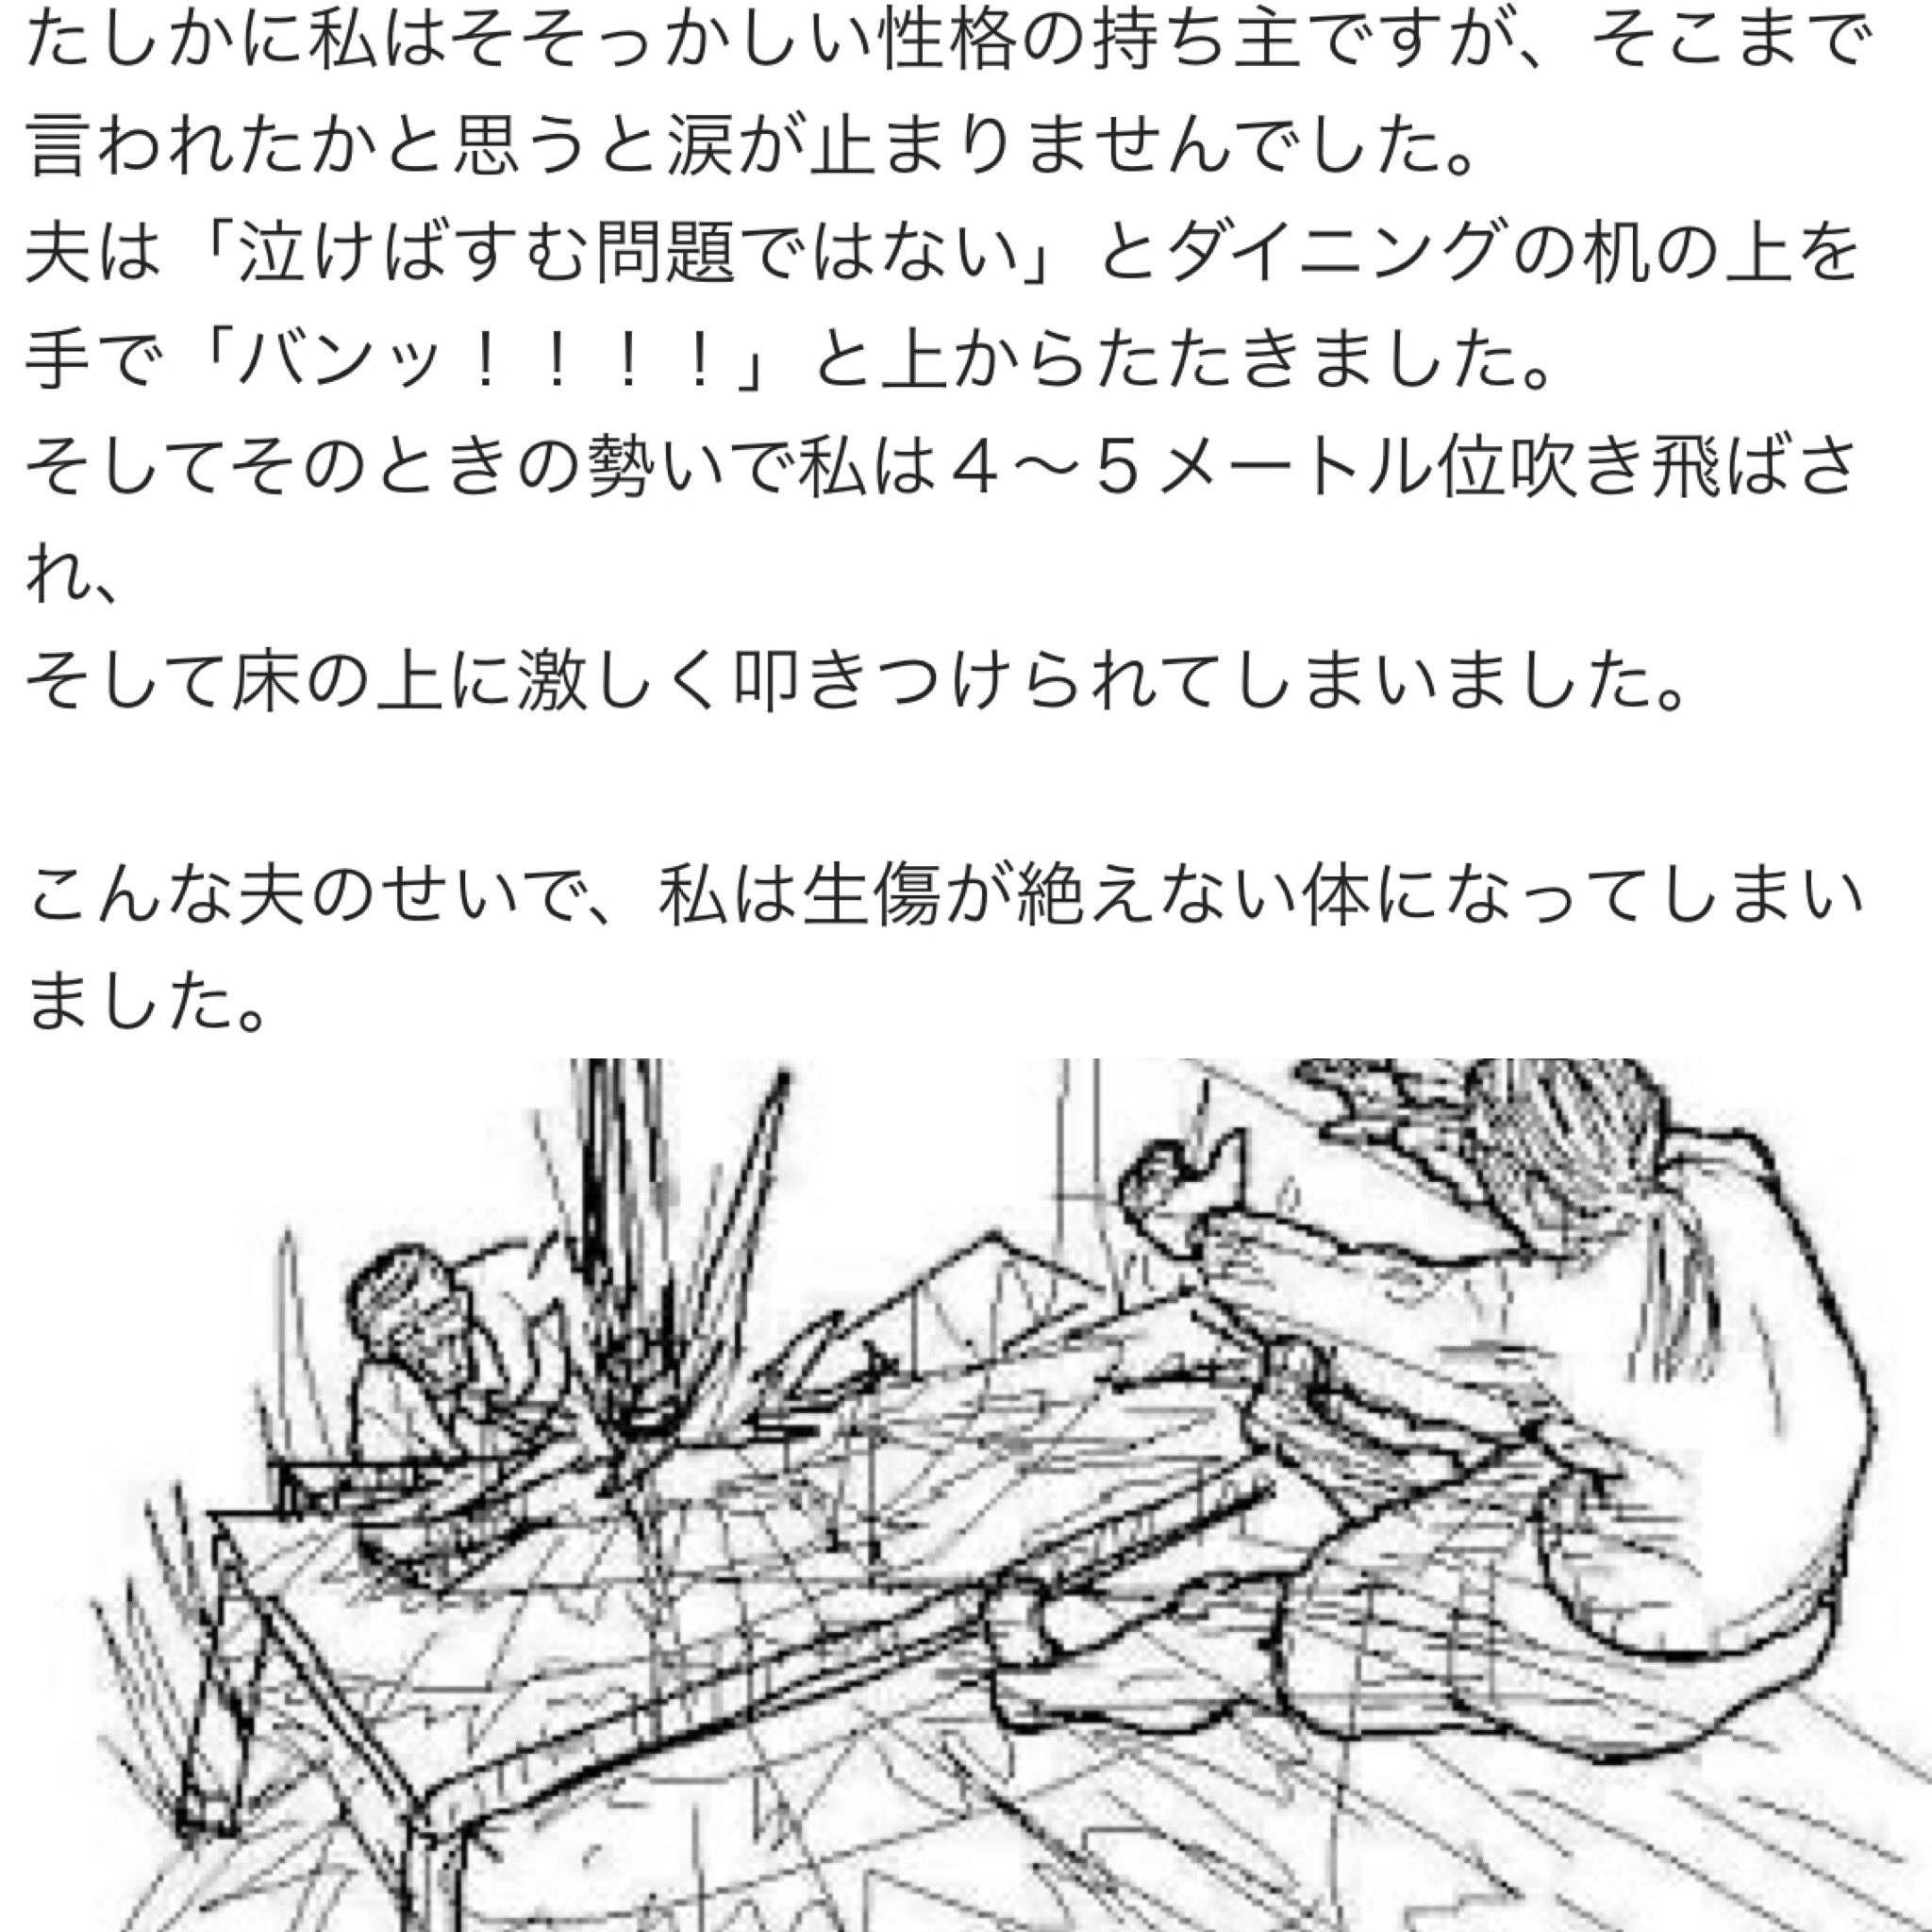 たしかに私はそそっかしい性格の持ち主ですが、そこまで
言われたかと思うと涙が止まりませんでした。
夫は「泣けばすむ問題ではない」とダイニングの机の上を
手で「バンッ！！！！」と上からたたきました。
そしてそのときの勢いで私は４〜５メートル位吹き飛ばさ
れ、
そして床の上に激しく叩きつけられてしまいました。
こんな夫のせいで、私は生傷が絶えない体になってしまい
ました。